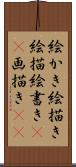 絵かき絵描き
絵描絵書き
画描き